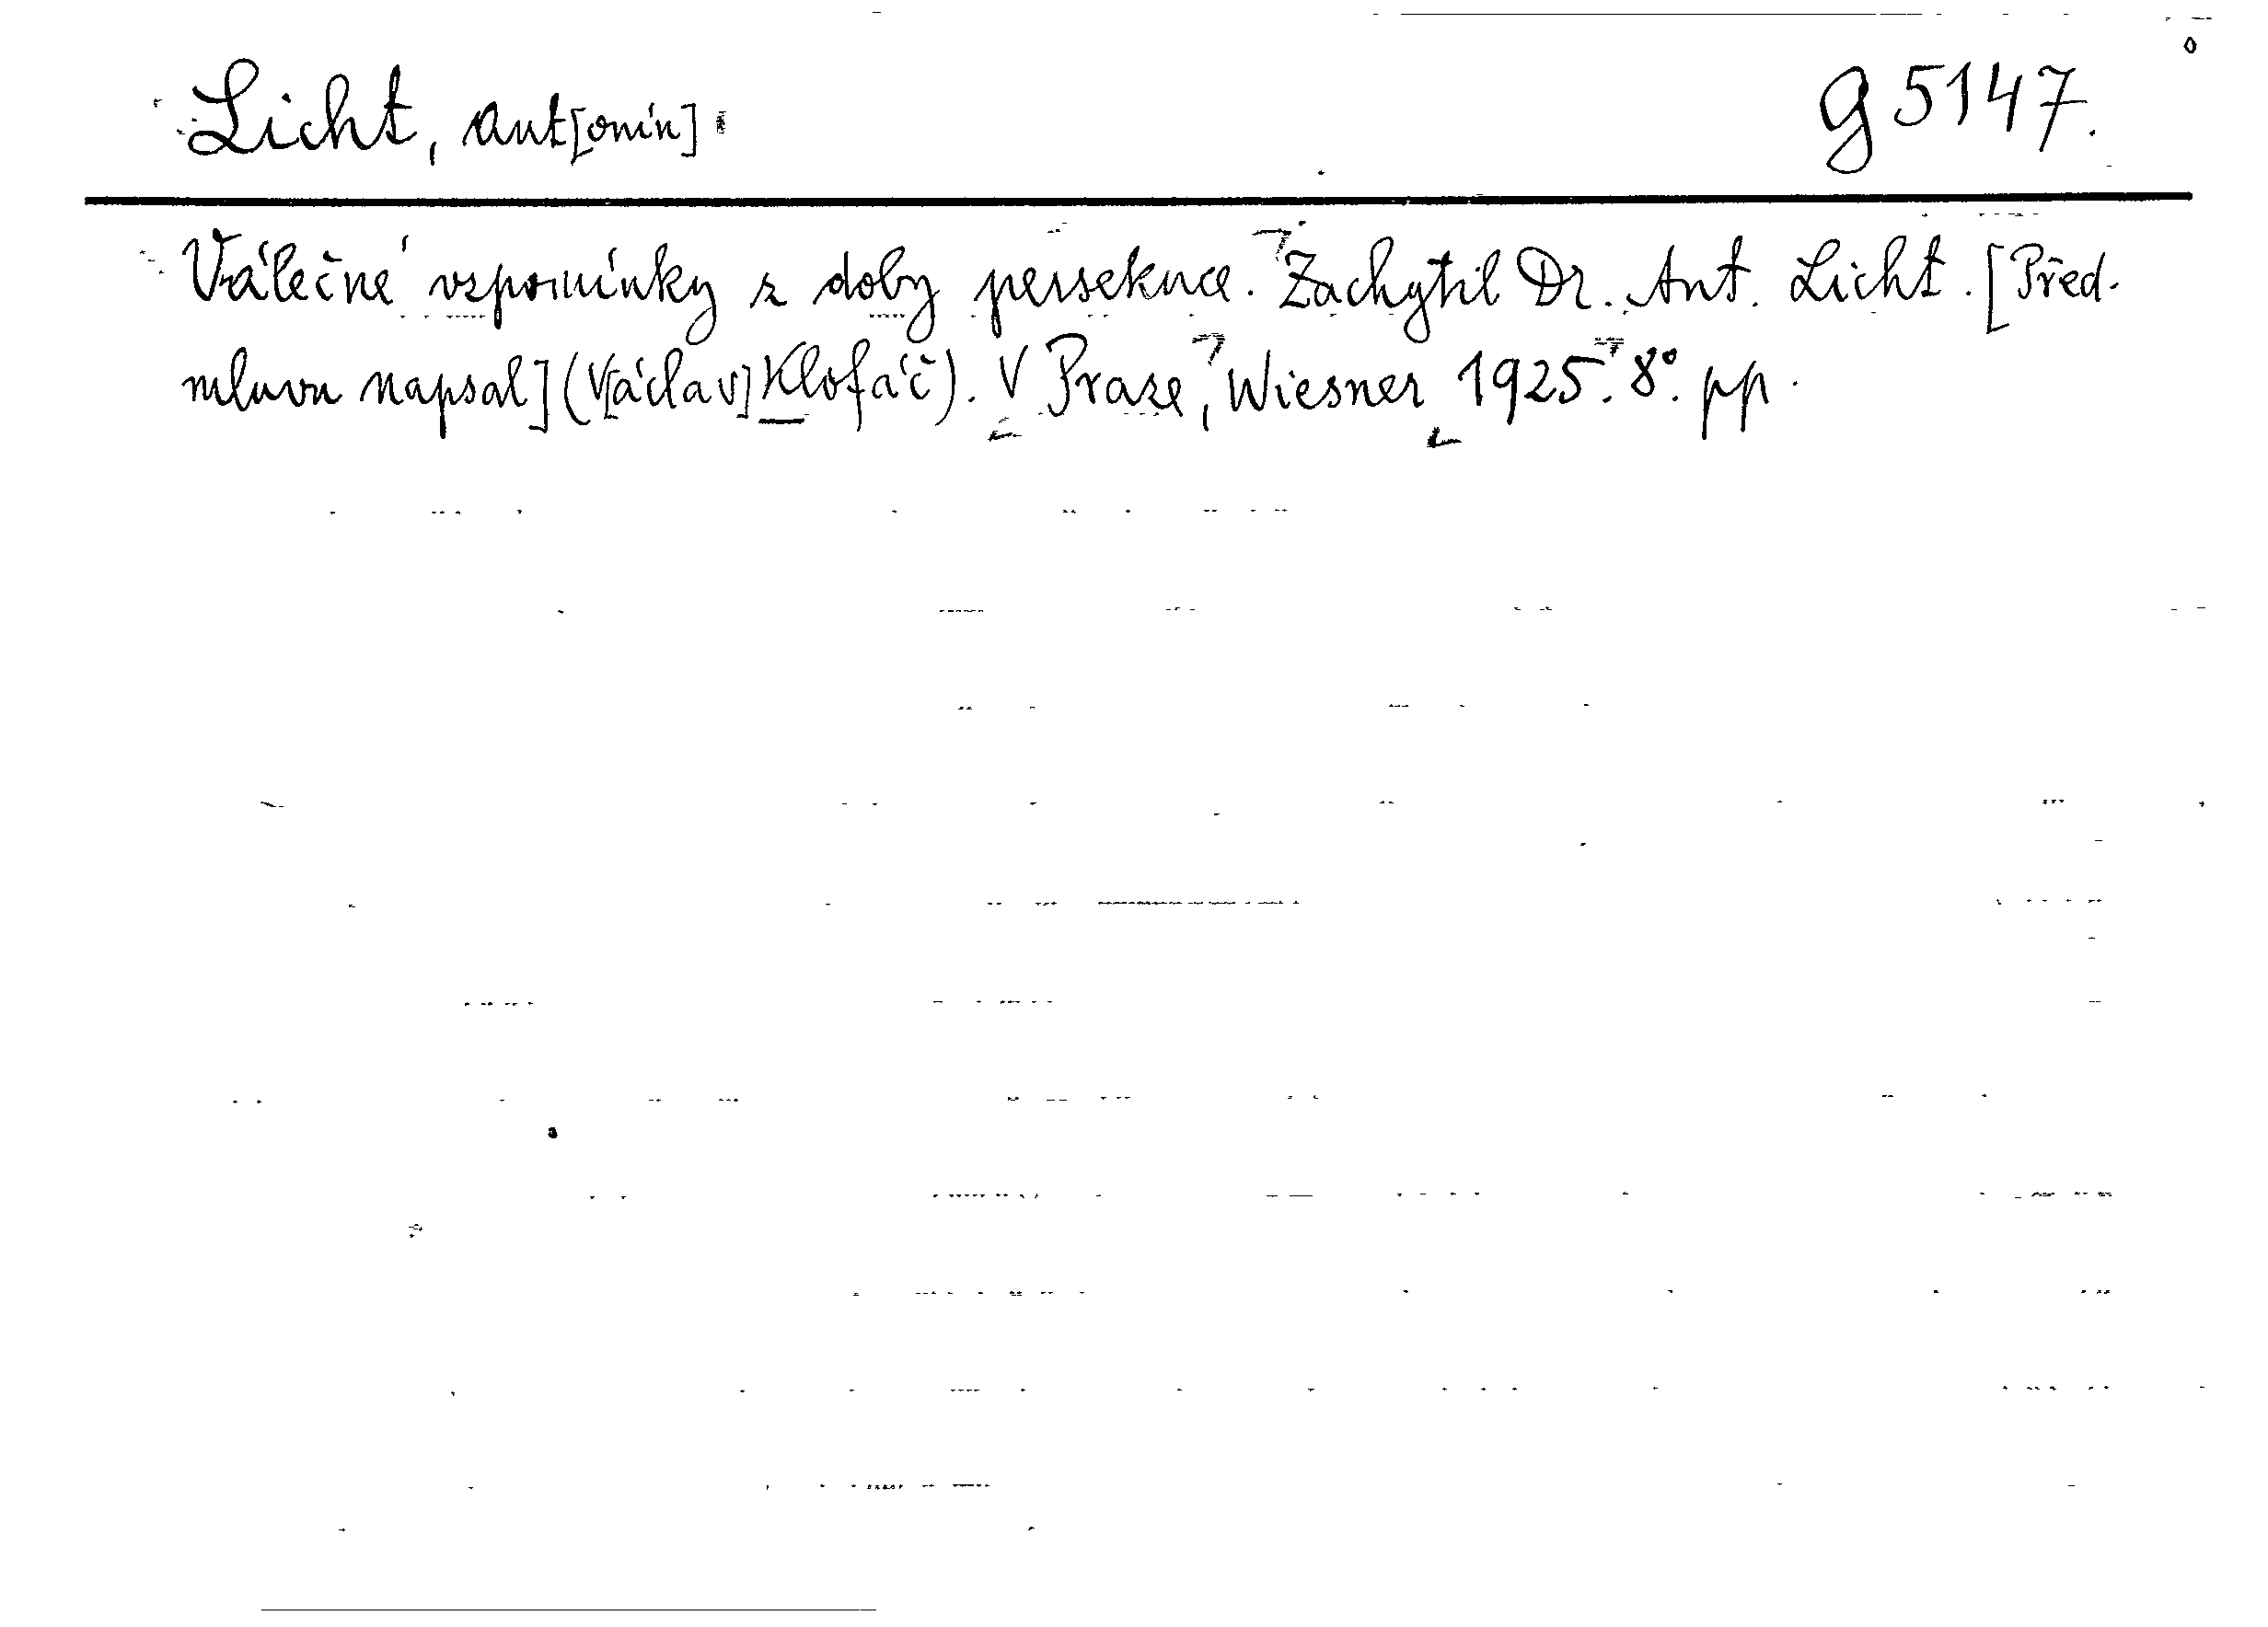 Licht, Ant[onín]
g 5147.
Válečné vzpomínky z doby persekuce. Zachytil Dr. Ant. Licht. [Před-
mluvu napsal] (V[áclav] Klofáč). V Praze, Wiesner 1925. 8°. pp.